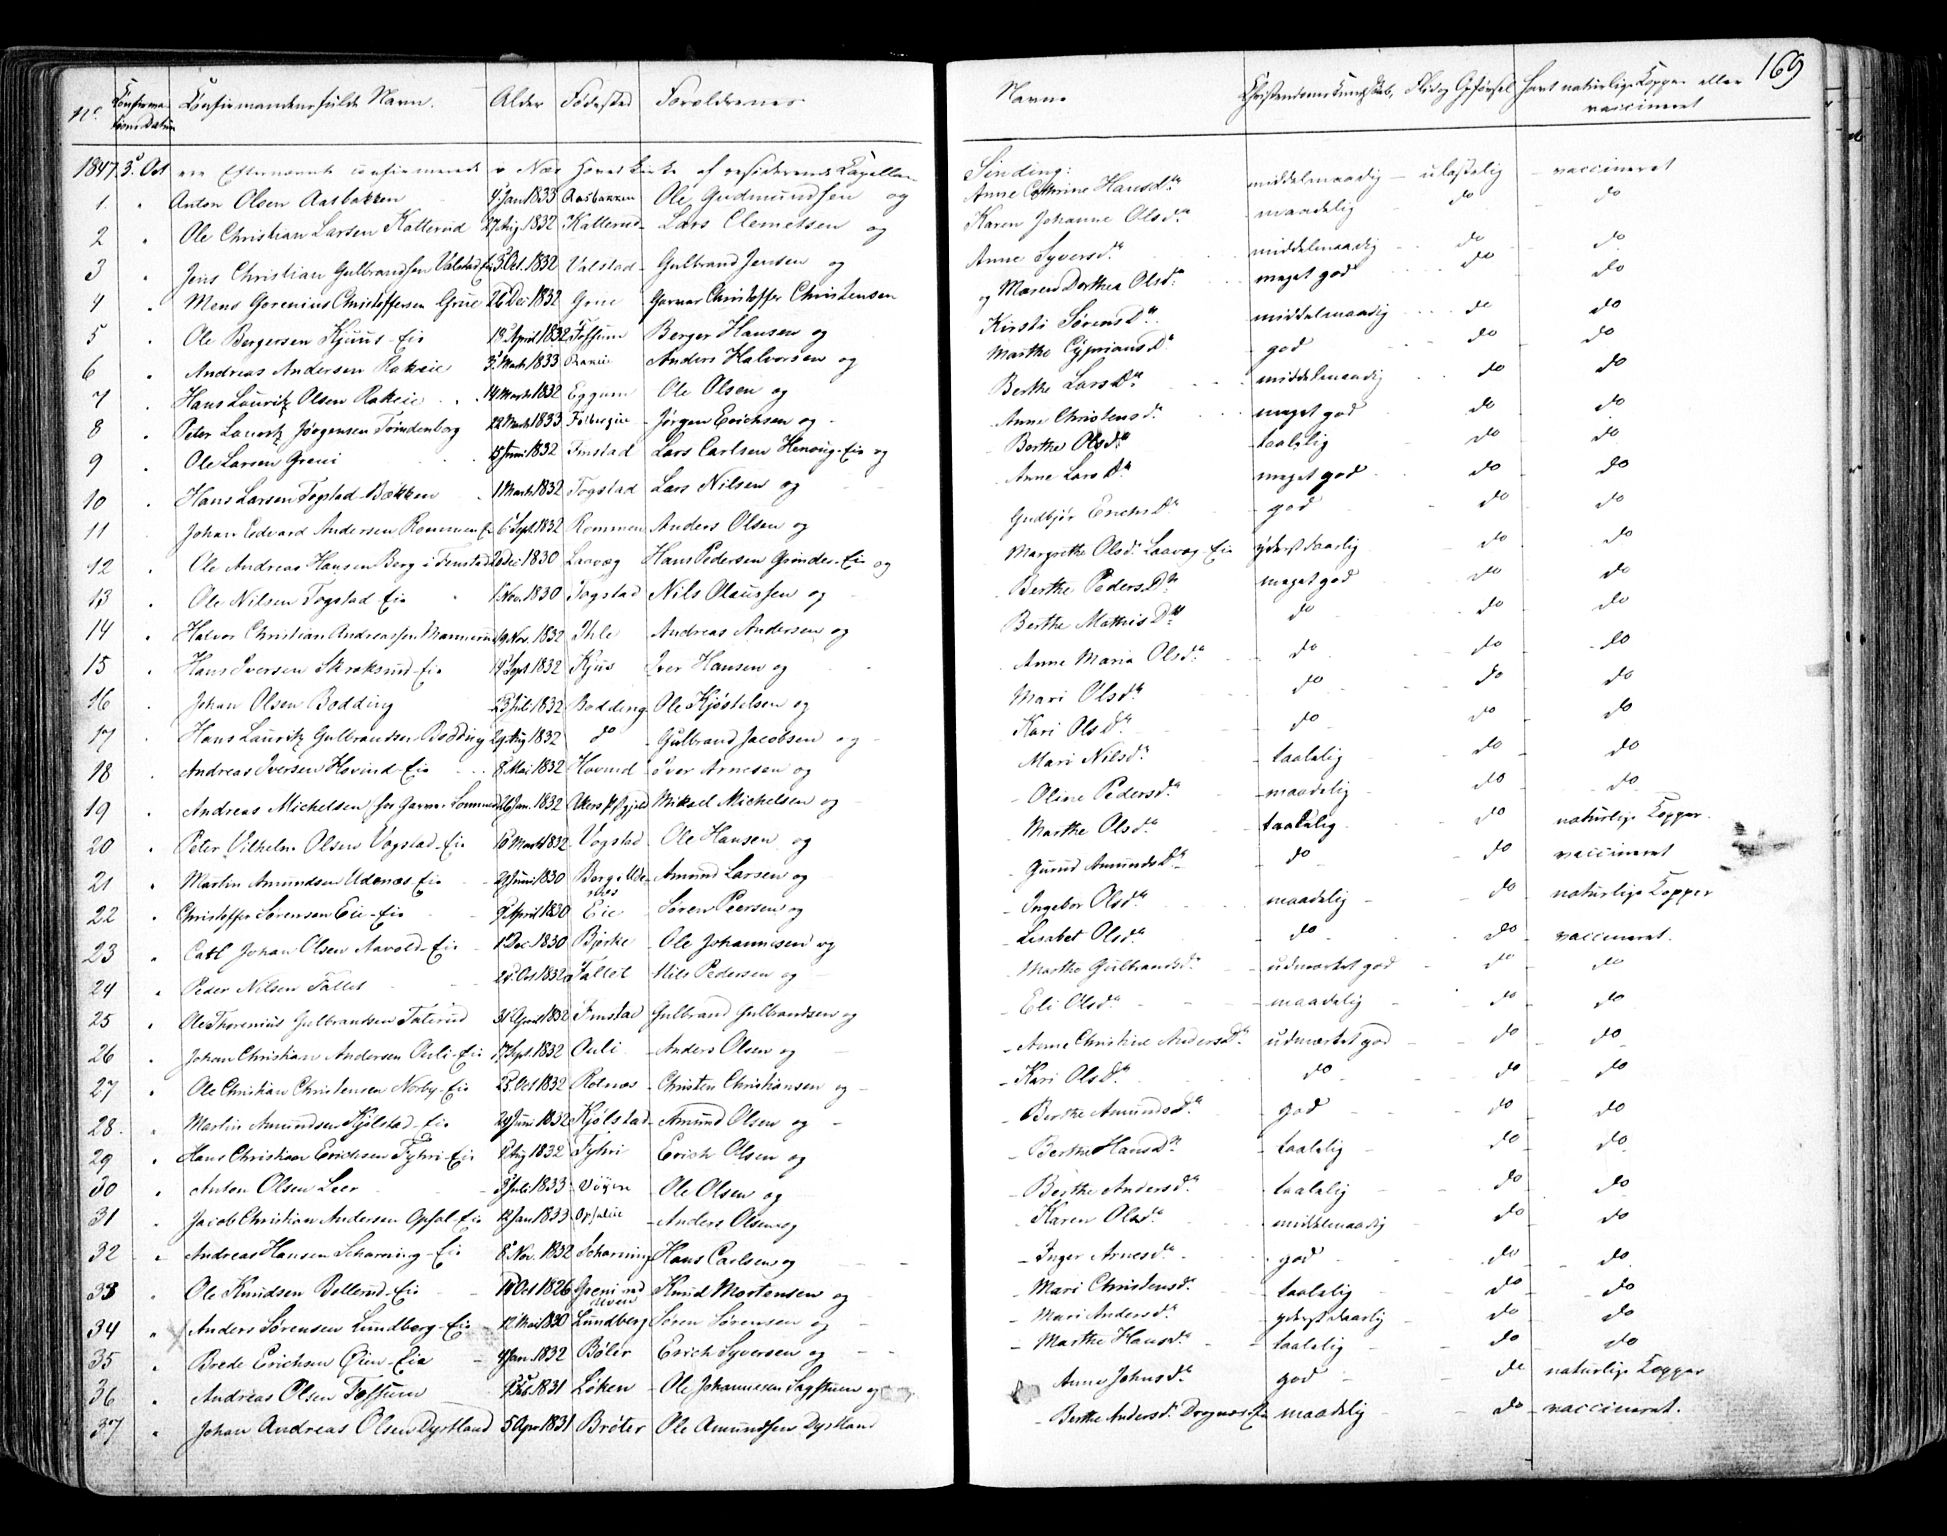 169
No Confirmations Datum Confirmandens fulde Navn. Alder Fødested Forældrenes Navne Christendoms Kundskab, Flid og Opførsel Havt naturlige Kopper eller vaccineret
1847. 3 Oct confirmerede Næs Hovedkirke af residerende Capellan Sinding:
1. Anton Olsen Aasbakken 4 Jan 1833 Aasbakken Ole Gudmundsen og Anne Cathrine Hansdr. middelmaadig ulastelig vaccineret
2 Ole Christian Larsen Katterud 27 Aug 1832 Katterud Lars Clemetsen og Karen Johanne Olsdr. maadelig do do
3 Jens Christian Gulbrandsen Valstad Eie 5 Oct. 1832 Valstad Gulbrand Jensen og Anne Syversdr. middelmaadig do do
4 Mens Gorenius Christoffersen Grue 26 Dec 1832 Grue Garver Christoffer Christensen og Maren Dorthea Olsdr. meget god do do
5 Ole Bergersen Kjuus-Eie 18 April 1832 Fossum Berger Hansen og Kirsti Sørensdr. middelmaadig do do
6 Andreas Andersen Rakeie 3 Marts 1833 Rakeie Anders Halvorsen og Marthe Cypriansdr. god do do
7 Hans Lauritz Olsen Rakeie 14 Marts 1832 Eggum Ole Olsen og Berthe Larsdr. middelmaadig do do
8 Peter Lauritz Jørgensen Trondenberg 22 Marts 1833 Jørgen Erichsen og Anne Christensdr. meget god do do
9 Ole Larsen Greni 15 Juni 1832 Finstad Lars Carlsen Henning-Eie og Berthe Olsdr. taalelig do do
10 Hans Larsen Togstad-Bakken 1 Marts 1832 Togstad Lars Nilsen og Anne Larsdr. meget god do do
11 Johan Edvard Andersen Rommen Eie 6 Sept 1832 Rommen Anders Olsen og Gudbjør Erichsdr. god do do
12 Ole Andreas Hansen Berg i Fenstad 2 Dec 1830 Laavæg Hans Pedersen Grinder-Eie og Margrethe Olsdr. Laavæg-Eie yderst daarlig do do
13 Ole Nilsen Togstad-Eie 1 Nov. 1830 Togstad Nils Olaussen og Berthe Pedersdr. meget god do do
14 Halvor Christian Andreassen Mannerud 19 Nov. 1832 Ihle Andreas Andersen og Berthe Mathisdr. do do do
15 Hans Iversen Skraksrud-Eie 14 Sept 1832 Kjus Iver Hansen og Anne Maria Olsdr. do do do
16 Johan Olsen Bodding 23 Juli 1832 Bodding Ole Kjøstelsen og Mari Olsdr. do do do
17 Hans Lauritz Gulbrandsen Bodding 29 Aug 1832 do Gulbrand Jacobsen og Kari Olsdr. do do do
18 Andreas Iversen Hovind-Eie 8 Mai 1832 Hovind Iver Arnesen og Mari Nilsdr. taalelig do do
19 Andreas Michelsen 26 Jan. 1832 Mikael Michelsen og Oline Pedersdr. maadelig do do
20 Peter Vilhelm Olsen Vogstad-Eie 16 Marts 1832 Vogstad Ole Hansen og Marthe Olsdr. taalelig do naturlige Kopper.
21 Martin Amundsen Udenæs-Eie 29 Juni 1830 Berg Udenæs Amund Larsen og Gurud Amundsdr. do do vaccineret
22 Christoffer Sørensen Eie-Eie 9 April 1830 Eie Søren Peersen og Ingebor Olsdr. maadelig do naturlige Kopper
23 Carl Johan Olsen Aavold-Eie 1 Dec 1830 Bjerke Ole Johannesen og Lisabet Olsdr. do do vaccineret.
24 Peder Nilsen Fallet 28 Oct 1832 Fallet Nils Pedersen og Marthe Gulbrandsdr. udmærket god do do
25 Ole Thorenius Gulbrandsen Taterud 31 April 1832 Finstad Gulbrand Gulbrandsen og Eli Olsdr. maadelig do do
26 Johan Christian Andersen Auli-Eie 17 Sept 1832 Auli Anders Olsen og Anne Christine Andersdr. udmærket god do do
27 Ole Christian Christensen Norby-Eie 23 Oct 1832 Rolnæs Christen Christiansen og Kari Olsdr. do do do
28. Martin Amundsen Kjølstad-Eie 24 Juni 1832 Kjølstad Amund Olsen og Berthe Amundsdr. god do do
29 Hans Christian Erichsen Fyhri-Eie 8 Aug 1832 Fyhri Erich Olsen og Berthe Hansdr. taalelig do do
30 Anton Olsen Leer 3 Juli 1833 Ole Olsen og Berthe Andersdr. taalelig do do
31 Jacob Christian Andersen Opsal-Eie 12 Jan 1833 Opsaleie Anders Olsen og Karen Olsdr. middelmaadig do do
32 Andreas Hansen Scharning-Eie 8 Nov. 1832 Scharning Hans Carlsen og Inger Arnesdr. god do do
33 Ole Knudsen Bellerud-Eie 10 Oct 1826 Greni ved Knud Mortensen og Mari Christensdr. taalelig do do
34 Anders Sørensen Lundberg-Eie 12 Mai 1830 Lundberg Søren Sørensen og Mari Andersdr. yderst daarlig do do
35 Brede Erichsen Øien-Eie 4 Jan 1832 Bøler Erich Syversen og Marthe Hansdr. taalelig do do
36 Andreas Olsen Fossum 1831 Løken Ole Johannesen Sagstuen og Anne Johnsdr. god do naturlige Kopper
37 Johan Andreas Olsen Dystland 5 Apr 1831 Brøter Ole Amundsen Dystland Berthe Andersdr. Dragnæs-Eie maadelig do vaccineret.